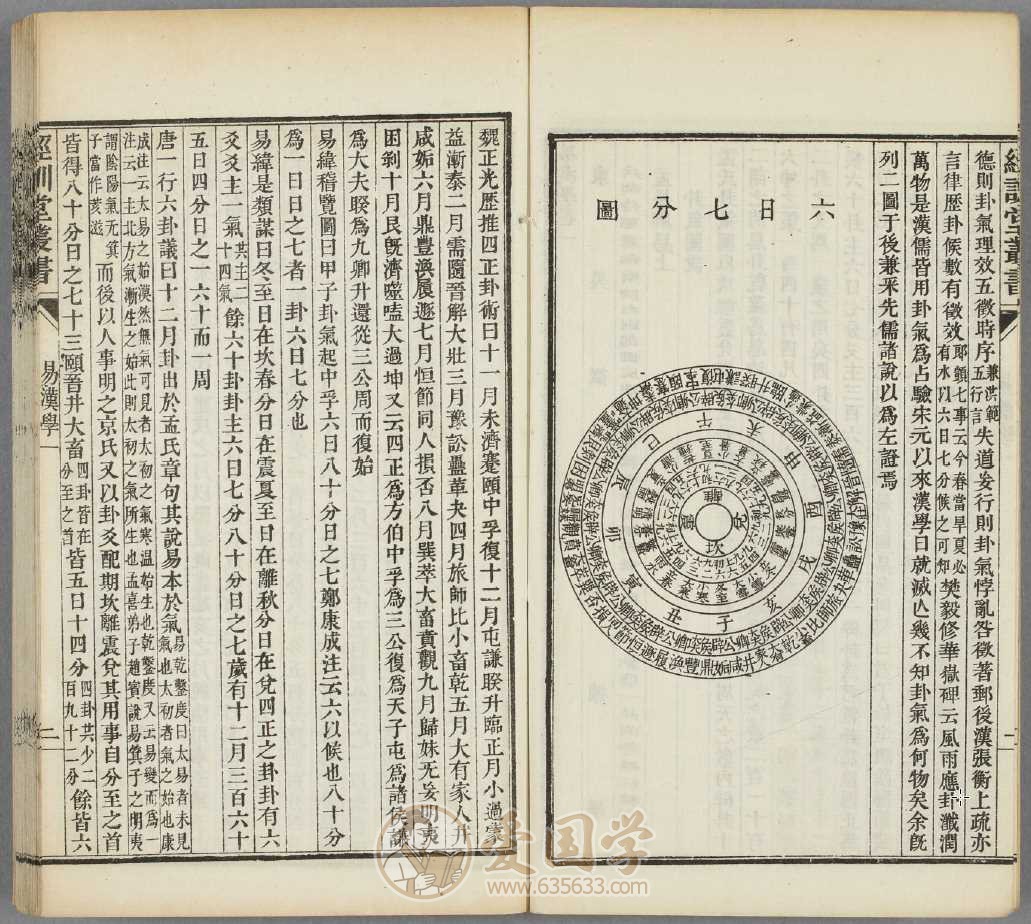 經訓堂叢書
德則卦氣理效五徵時序兼洪範五行言失道妄行則卦氣悖亂咎徵著郵後漢張衡上疏亦
言律歷卦候數有徵效郎顗七事云今春當旱夏必有水以六日七分候之可知樊毅修華嶽碑云風雨應卦瀸潤
萬物是漢儒皆用卦氣爲占驗宋元以來漢學日就滅亾幾不知卦氣爲何物矣余旣
列二圖于後兼釆先儒諸說以爲左證焉
六日七分圖
子
丑
寅
卯
辰
巳
午
未
申
酉
戌
亥
坎
震
離
兌
魏正光歷推四正卦術曰十一月未濟蹇頤中孚復十二月屯謙睽升臨正月小過蒙
益漸泰二月需隨晉解大壯三月豫訟蠱革夬四月旅師比小畜乾五月大有家人井
咸姤六月鼎豐渙履遯七月恒節同人損否八月巽萃大畜賁觀九月歸妹无妄明夷
困剝十月艮旣濟噬嗑大過坤又云四正爲方伯中孚爲三公復爲天子屯爲諸侯謙
爲大夫睽爲九卿升還從三公周而復始
易緯稽覽圖曰甲子卦氣起中孚六日八十分日之七鄭康成注云六以候也八十分
爲一日日之七者一卦六日七分也
易緯是類謀曰冬至日在坎春分日在震夏至日在離秋分日在兌四正之卦卦有六
爻爻主一氣共主二十四氣餘六十卦卦主六日七分八十分日之七歲有十二月三百六十
五日四分日之一六十而一周
唐一行六卦議曰十二月卦出於孟氏章句其說易本於氣易乾鑿度曰太易者未見氣也太初者氣之始也康
成注云太易之始漠然無氣可見者太初之氣寒温始生也乾鑿度又云易變而爲一
注云一主北方氣漸生之始此則太初之氣所生也孟喜弟子趙賓說易箕子之明夷
謂陰陽氣无箕子子當作荄滋而後以人事明之京氏又以卦爻配期坎離震兌其用事自分至之首
皆得八十分日之七十三頤晉井大畜四卦皆在分至之首皆五日十四分四卦共少二百九十二分餘皆六
經訓堂叢書
易漢學一
二
爱国学
www.635633.com